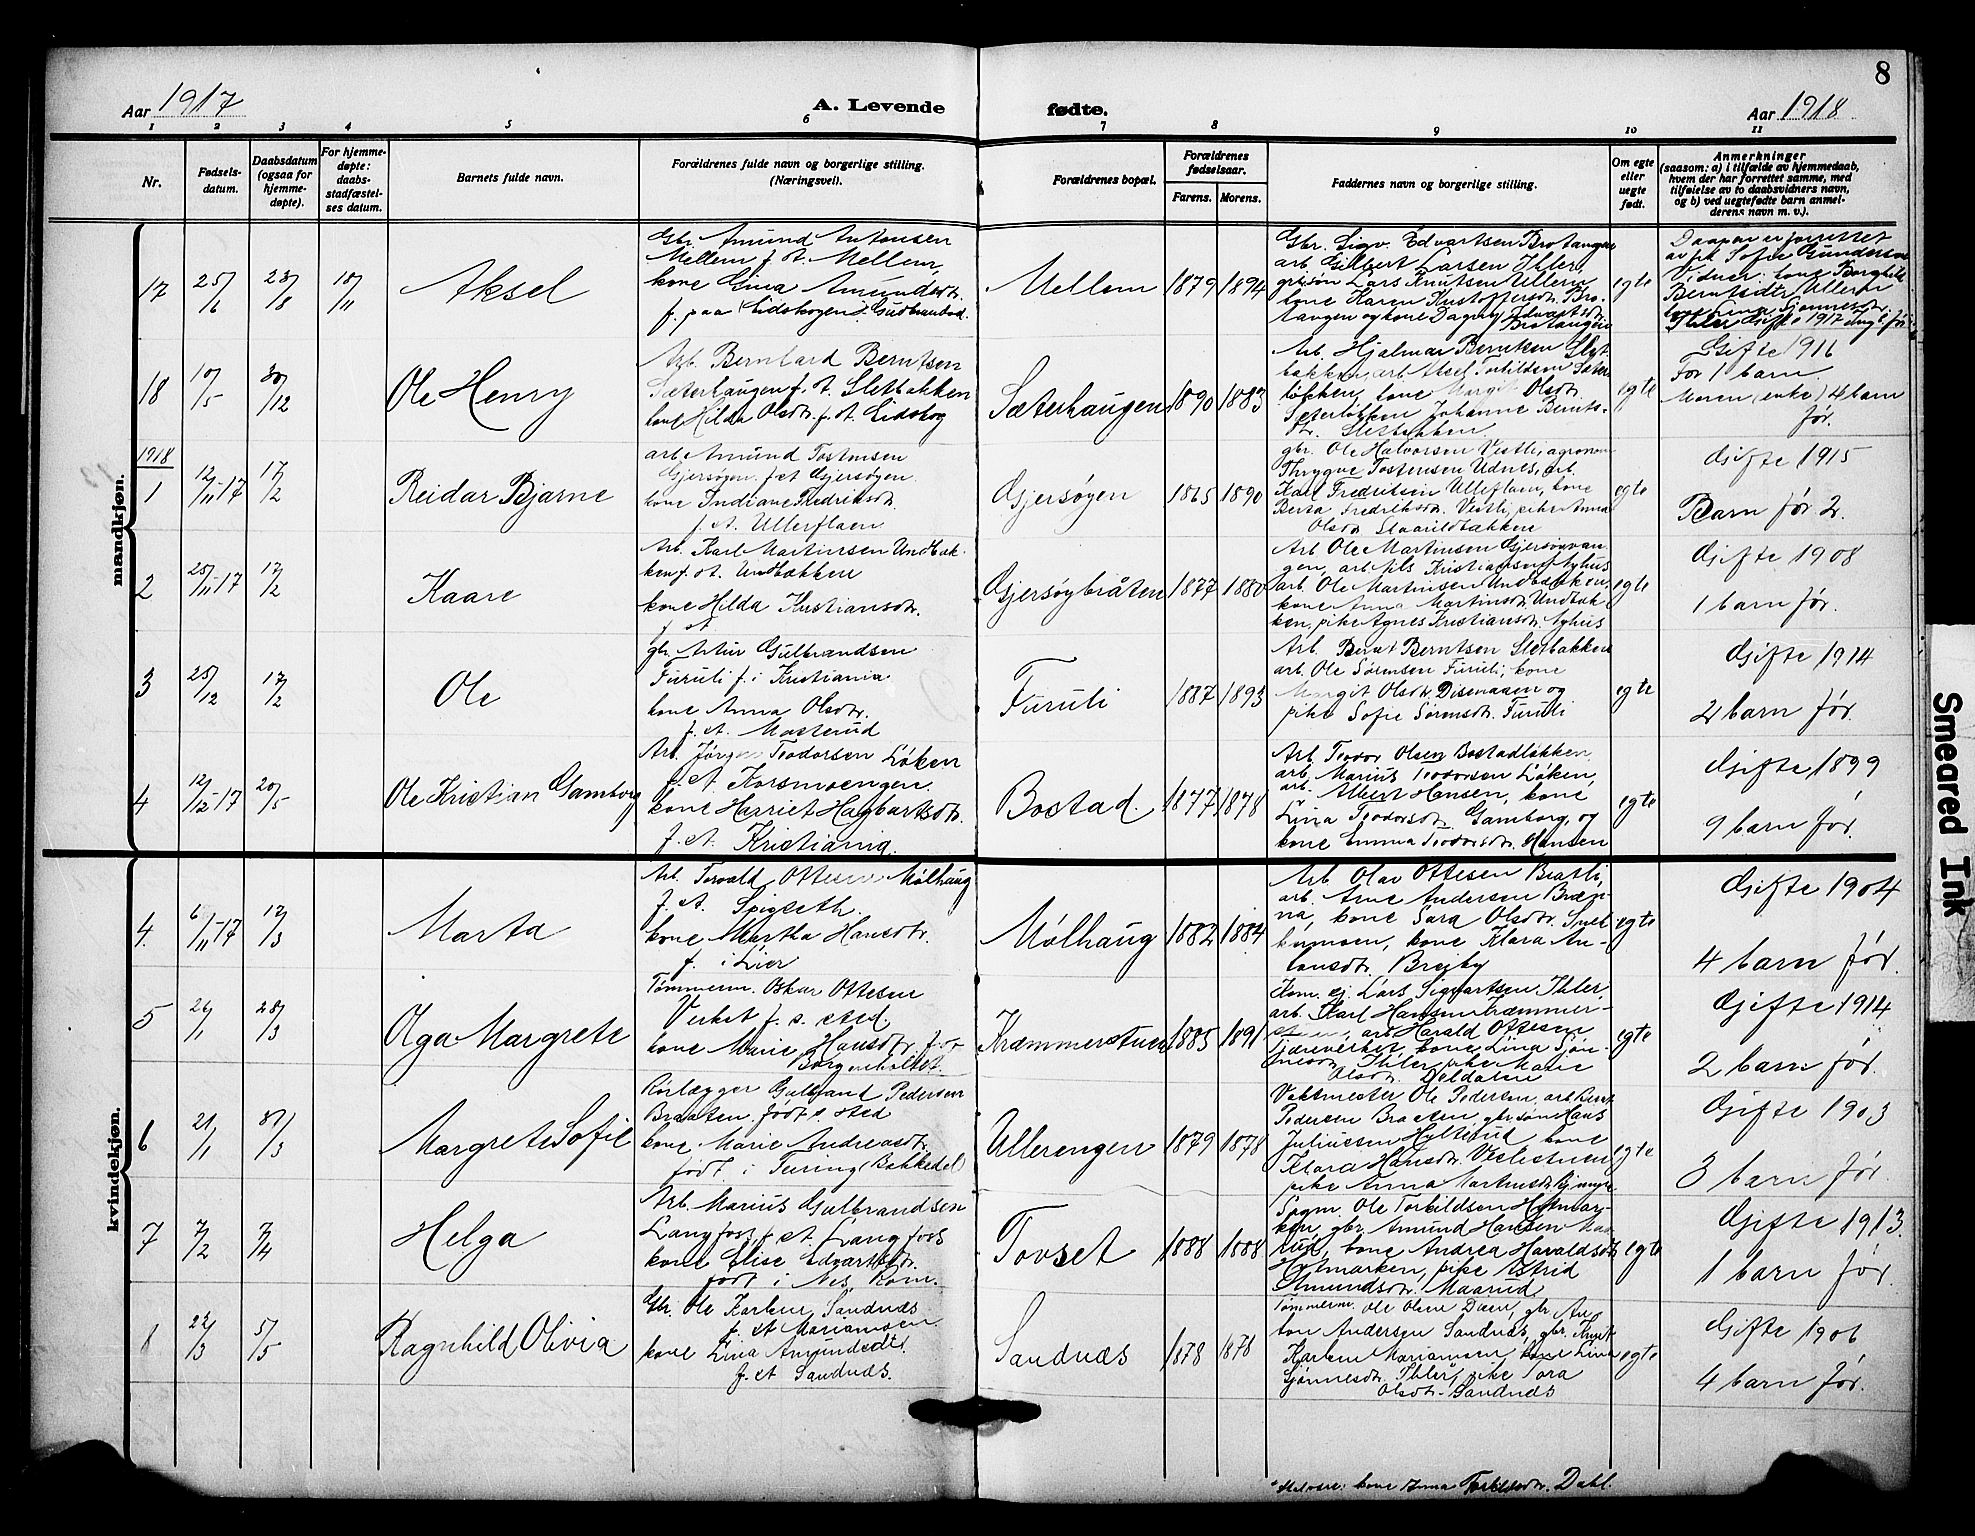 8
Aar 1917
A. Levende
fødte.
Aar 1918
1 2 3 4 5 6 7 8 9 10 11
Nr.
Fødsels-
datum.
Daabsdatum
(ogsaa for
hjemme-
døpte).
For hjemme-
døpte:
daabs-
stadfæstel-
ses datum.
Barnets fulde navn.
Forældrenes fulde navn og borgerlige stilling.
(Næringsvei).
Forældrenes bopæl.
Forældrenes
fødselsaar.
Farens. Morens.
Faddernes navn og borgerlige stilling.
Om egte
eller
uegte
født.
Anmerkninger
(saasom: a) i tilfælde av hjemmedaab,
hvem der har forrettet samme, med
tilføielse av to daabsvidners navn,
og b) ved uegtefødte barn anmel-
derens navn m. v.).
mandkjøn.
17 25/6 23/8 18/11 Aksel
Gbr. Amund Antonsen
Mellem f. st. Mellem,
kone Gina Amundsdtr.
f. paa Eidskogen
Mellem 1879 1894
Gbr. Sigv. Edvartsen Brotangen
arb. Gilbert Larsen Ihler,
Lars Knutsen Ullern
kone Karen Kristoffersdtr. Bro-
tangen og kone Dagny Edvartsdtr.
Brotangen
egte
Daapen er forrettet
av frk Sofie Gundersen
Vidner: kone Borghild
Berntsdtr Ullern
Ihler Gifte 1917 Ing. før.
18 10/5 30/12 Ole Henry
Arb. Bernhard Berntsen
Sæterhaugen f. st. Sletbakken
kone Hilda Olsdtr. f. st. Eidskog
Sæterhaugen 1890 1883
Arb. Hjalmar Berntsen Slet-
bakken, arb. Aksel Torkildsen Sæter-
løkken, kone Margit Olsdtr.
Seterløkken Johanne Bernts-
dtr. Sletbakken
egte
Gifte 1916
Før 1 barn
Moren (enke) 4 barn
før.
1918
1 12/11-17 17/2 Reidar Bjarne
arb. Amund Tostensen
Gjersøyen f. st. Gjersøyen
kone Indiane Fredriksdtr.
f. st. Ullerflaen
Gjersøyen 1865 1890
gbr. Ole Halvorsen Vestli, agronom
Thrygve Tostensen Udnes, arb.
Karl Fredriksen Ulleflaen, kone
Berta Fredriksdtr. Vestli, pike Anna
Olsdtr. Skaarildbakken
egte
Gifte 1915
Barn før 2.
2 25/11-17 17/2 Kaare
Arb. Karl Martinsen Undbak-
ken f. st. Undbakken
kone Hilda Kristiansdtr.
f. st.
Gjersøybråten 1877 1880
Arb. Ole Martinsen Gjersøyvan-
gen, arb. Nils Kristiansen Nyhus
arb. Ole Martinsen Undbakken,
kone Anna Martinsdtr. Undbak-
ken, pike Agnes Kristiansdtr. Nyhus
egte
Gifte 1908
1 barn før.
3 25/12 17/2 Ole
gbr. Artur Gulbrandsen
Furuli f. i Kristiania
kone Anna Olsdtr.
f. st. Mosterud
Furuli 1887 1893
Arb. Bernt Berntsen Sletbakken
arb. Ole Sørensen Furuli, kone
Margit Olsdtr. Disenaaen og
pike Sofie Sørensdtr. Furuli
egte
Gifte 1914
2 barn før.
4 12/12-17 20/5 Ole Kristian Gamborg
Arb. Jørgen Teodorsen Løken
f. st. Korsmoengen.
kone Harriet Hagbartsdtr.
f. st. Kristiania.
Bostad. 1877 1878
Arb. Teodor Olsen Bostadløkken,
arb. Marius Teodorsen Løken,
arb. Albert Hansen, kone
Lina Teodorsdtr. Gamborg, og
kone Emma Teodorsdtr. Hansen
egte
Gifte 1899
9 barn før.
kvindekjøn.
4. 6/11-17 17/3 Marta
Arb. Torvald Ottesen Mølhaug
f. st. Spigseth.
kone Martha Hansdtr.
f. i Lier
Mølhaug 1882 1884
Arb. Olav Ottesen Bratli,
arb. Arne Andersen
kone Sara Olsdtr.
kone Klara An-
tonsdtr. Brejby
egte
Gifte 1904
4 barn før.
5 26/1 28/3 Olga Margrete
Tømmerm. Oskar Ottesen
Verket f. s. sted.
kone Marie Hansdtr. f. st
Borgenholtet
Kræmmerstuen 1885 1891
Lars Sigvartsen Ihler,
arb. Karl Hansen Kræmmer-
stuen, arb. Harald Ottesen
Tjæreverket, kone Lina Sjøn-
nesdtr. Ihler, pike Marie
Olsdtr. Deldalen
egte
Gifte 1914
2 barn før.
6 21/1 31/3 Margrete Sofie
Rørlægger Gulbrand Pedersen
Braaten født s. sted
kone Marie Andreasdtr.
født i Furing (Bakkedel)
Ullerengen 1879 1878
Vaktmester Ole Pedersen, arb. Bernt
Pedersen Braaten gbr.søn Hans
Juliussen Hyltesud, kone
Klara Hansdtr. Veslestuen
pike Anna Martinsdtr.
egte
Gifte 1903
3 barn før.
7 7/2 7/4 Helga
Arb. Marius Gulbrandsen
Langfoss f. st. Langfoss
kone Elise Edvartsdtr.
født i Nes, Rom.
Tovset 1888 1888
Ole Torkildsen Hotmar-
ken, gbr. Amund Hansen Maa-
rud, kone Andrea Haraldsdtr.
Hotmarken, pike Astrid
Amundsdtr. Maarud
egte
Gifte 1913.
1 barn før.
8 22/3 5/5 Ragnhild Olivia
Gbr. Ole Karlsen Sandnæs
f. st. Mariamoen.
kone Lina Amundsdtr.
f. st. Sandnæs.
Sandnæs 1878 1878
Tømmerm. Ole Olsen Daen, gbr. An-
ton Andersen Sandnæs, gbr. Knut
Karlsen Mariamoen, kone Lina
Sjønnesdtr. Ihler, pike Tora
Olsdtr. Sandnæs
egte
Gifte 1906
4 barn før.
kone Anna Torkildsdtr. Dahl.
Smeared Ink